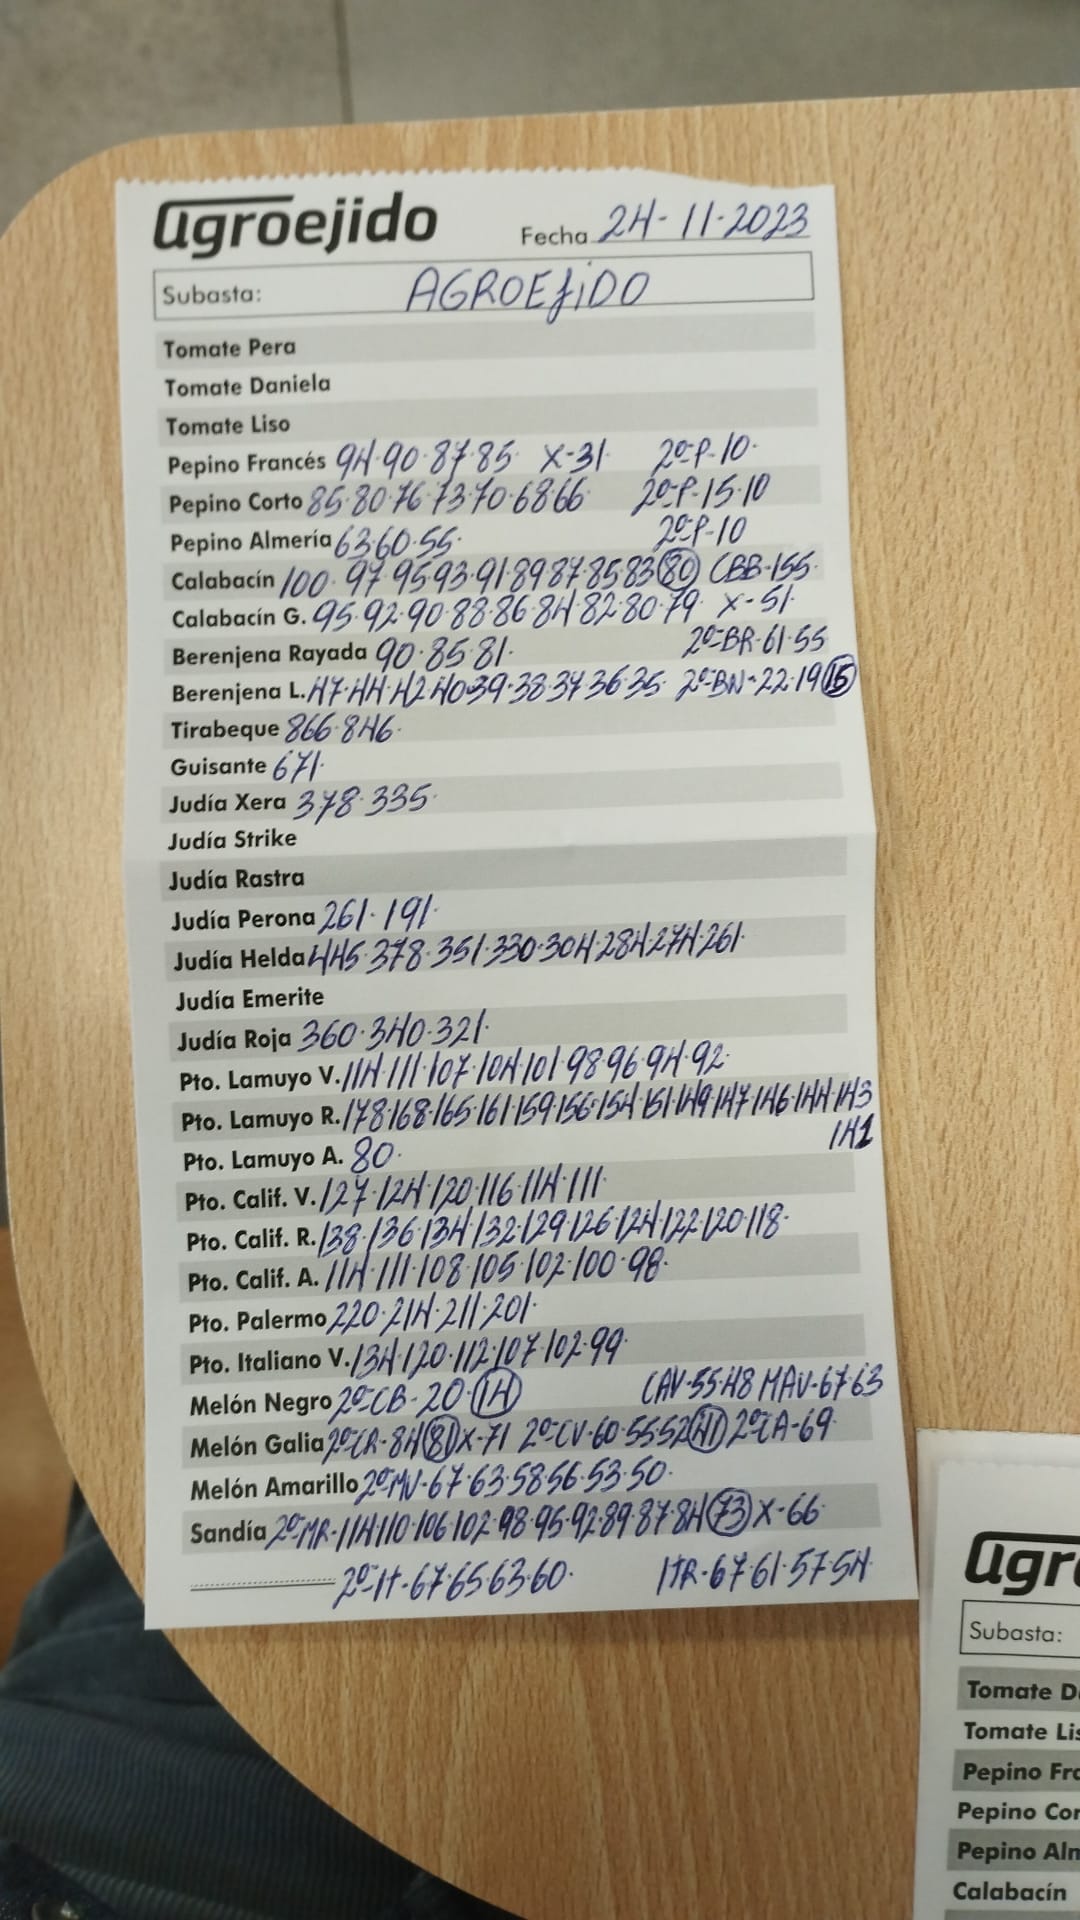 agroejido
Fecha 24-11-2023
Subasta: AGROEJIDO
Tomate Pera
Tomate Daniela
Tomate Liso
Pepino Francés 94·90·87·85 X-31 2º-P-10·
Pepino Corto 85·80·76·73·70·68·66 2º-P-15·10
Pepino Almería 63·60·55· 2º-P-10
Calabacín 100·97·95·93·91·89·87·85·83 80 CBB-155·
Calabacín G. 95·92·90·88·86·84·82·80·79· X-51·
Berenjena Rayada 90·85·81· 2º-BR·61·55
Berenjena L. 47·44·42·40·39·38·37·36·35 2º-BN-22·19 15
Tirabeque 866·846·
Guisante 671·
Judía Xera 378·335·
Judía Strike
Judía Rastra
Judía Perona 261·191·
Judía Helda 445·378·351·330·304·284·274·261·
Judía Emerite
Judía Roja 360·340·321·
Pto. Lamuyo V. 114·111·107·104·101·98·96·94·92·
Pto. Lamuyo R. 178·168·165·161·159·156·154·151·149·147·146·144·143
141
Pto. Lamuyo A. 80·
Pto. Calif. V. 127·124·120·116·114·111·
Pto. Calif. R. 138·136·134·132·129·126·124·122·120·118·
Pto. Calif. A. 114·111·108·105·102·100·98·
Pto. Palermo 220·214·211·201·
Pto. Italiano V. 134·120·112·107·102·99·
Melón Negro 2º-CB-20· 14 CAV-55·48 MAV-67·63
Melón Galia 2º-CR-84 81 X-71 2º-CV-60·55·52 41 2º-CA-69
Melón Amarillo 2º-MV-67·63·58·56·53·50·
Sandía 2º-MR-114·110·106·102·98·95·92·89·87·84 73 X-66·
2º-It-67·65·63·60· ITR·67·61·57·54
agr
Subasta:
Tomate D
Tomate Lis
Pepino Fra
Pepino Cor
Pepino Alm
Calabacín